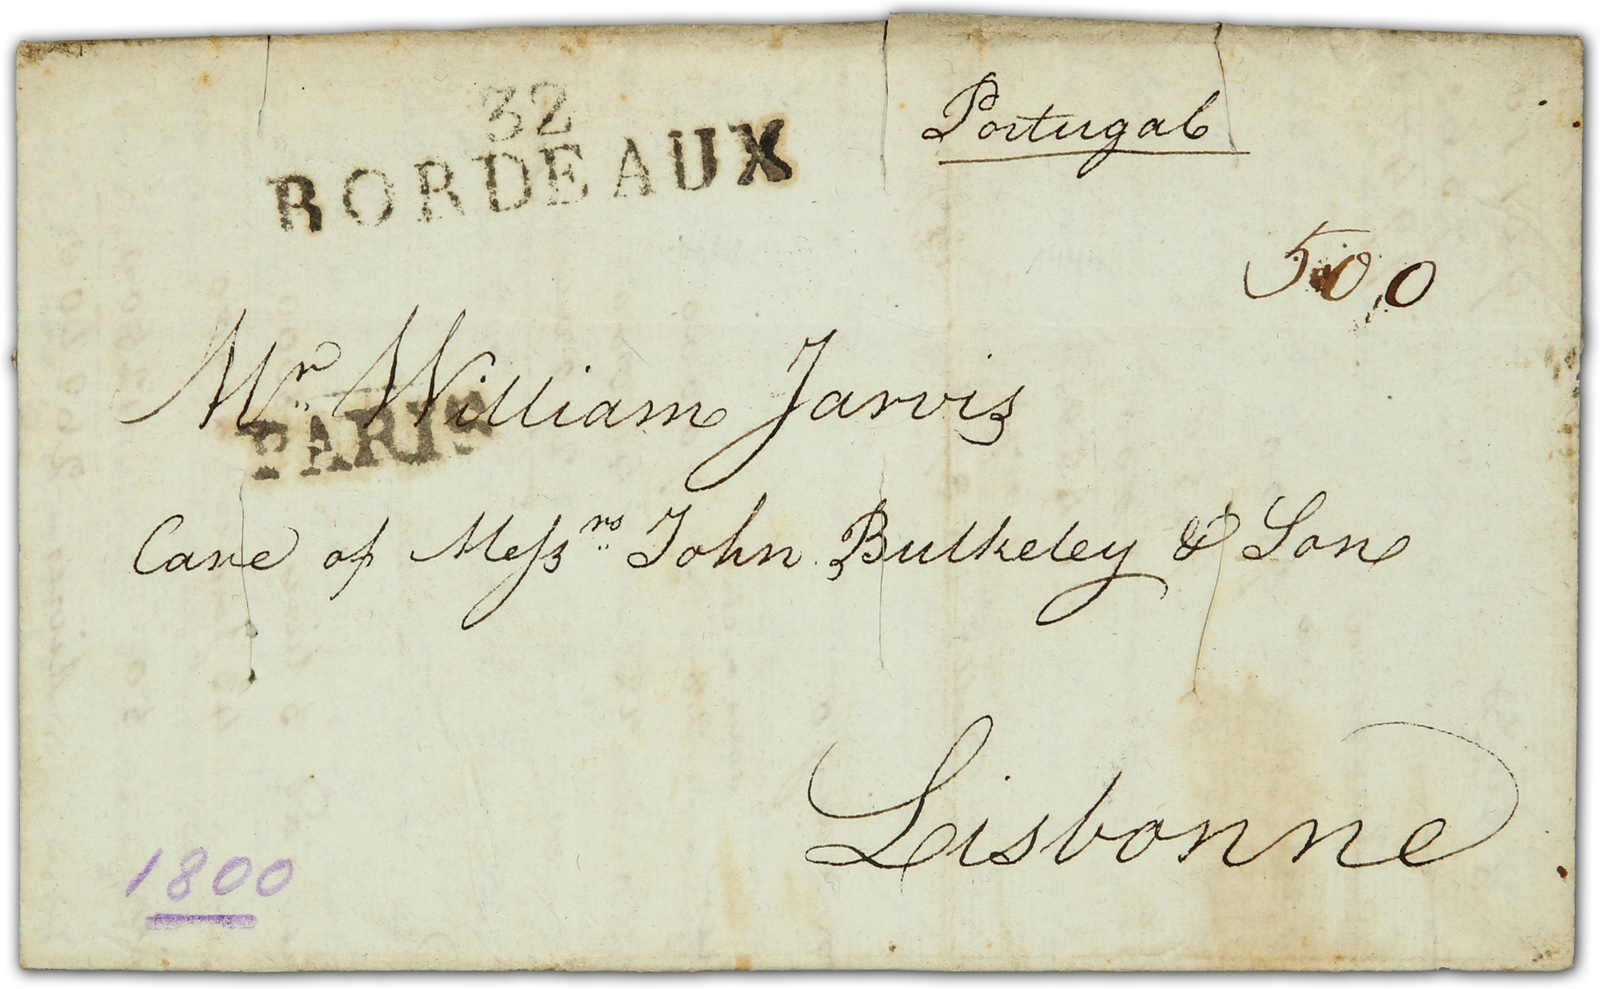 32
BORDEAUX
Portugal
500
Mr. William Jarvis
PARIS
Care of Messrs. John Bulkeley & Son
Lisbonne
1800